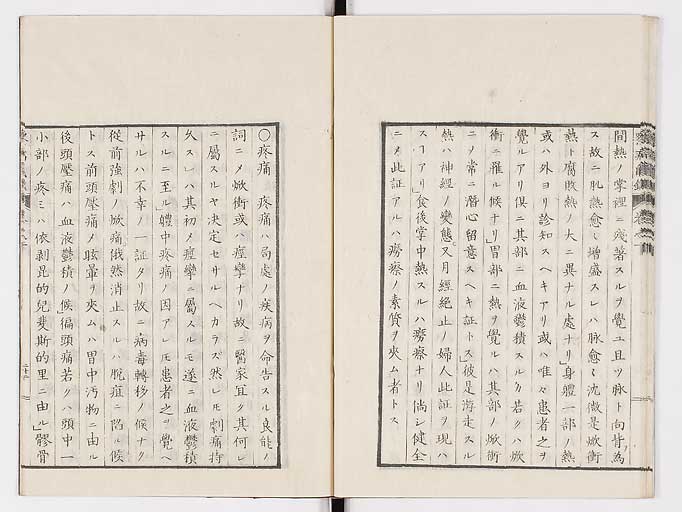 間熱ノ掌裡ニ残著スルヲ覺ユ且ツ脉ト向背為
ス故ニ乢熱愈〻増盛スレハ脉愈〻沈微是焮衝
熱ト腐敗熱ノ大ニ異ナル處ナリ」身體一部ノ熱
或ハ外ヨリ診知スヘキアリ或ハ唯々患者之ヲ
覺ルアリ倶ニ其部ニ血液鬱積スルカ若クハ焮
衝ニ罹ル候ナリ」胃部ニ熱ヲ覺ルハ其部ノ焮衝
ニヲ常ニ潜心留意スヘキ証トス」彼是游走スル
熱ハ神經ノ變態又月經絶止ノ婦人此証ヲ現ハ
スヿアリ」食後掌中熱スルハ癆瘵ナリ倘シ健全
ニメ此証アルハ癆瘵ノ素質ヲ夾ム者トス
〇疼痛　疼痛ハ局處ノ疾病ヲ命告スル良能ノ
詞ニメ焮衝或ハ痙攣ナリ故ニ醫家宜ク其何レ
ニ屬スルヤ決定セサルヘカラズ然レ𪜈劇痛持
久スレハ其初メ痙攣ニ屬スルモ遂ニ血液鬱積
スルニ至ル」體中疼痛ノ因アレ𪜈患者之ヲ覺ヘ
サルハ不幸ノ一証タリ故ニ病毒轉移ノ候ナク
從前強劇ノ焮痛俄然消止スルハ脱疽ニ陷ル候
トス前頭壓痛ノ眩暈ヲ夾ムハ胃中汚物ニ由ル
後頭壓痛ハ血液鬱積ノ候」偏頭痛若クハ頭中一
小部ノ疼ミハ依剥昆的兒斐斯的里ニ由ル」髎骨